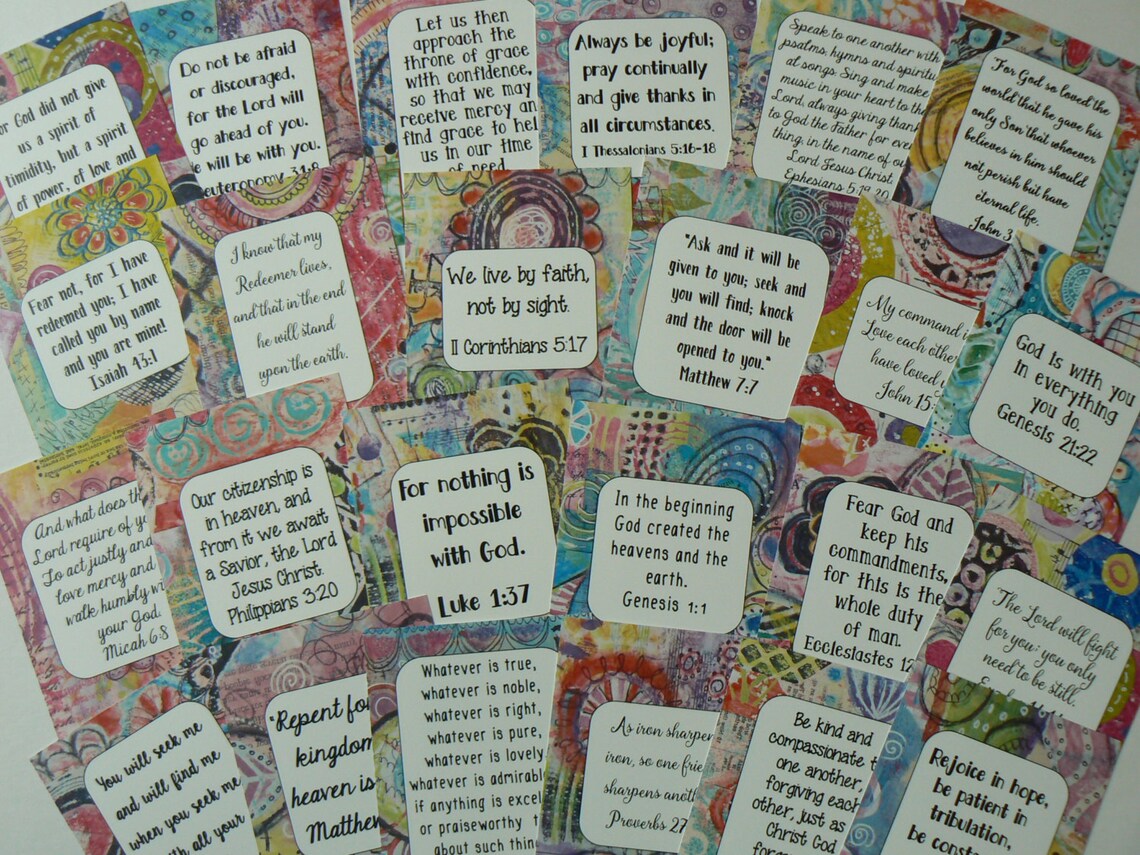 or God did not give
us a spirit of
timidity, but a spirit
of power, of love and
Do not be afraid
or discouraged,
for the Lord will
go ahead of you.
e will be with you.
euteronomy 31:8
Let us then
approach the
throne of grace
with confidence,
so that we may
receive mercy an
find grace to hel
us in our time
of need.
Always be joyful;
pray continually
and give thanks in
all circumstances.
I Thessalonians 5:16-18
Speak to one another with
psalms, hymns and spiritu
al songs. Sing and make
music in your heart to the
Lord, always giving than
to God the Father for ever
thing, in the name of ou
Lord Jesus Christ.
Ephesians 5:19-20
"For God so loved the
world that he gave his
only Son that whoever
believes in him should
not perish but have
eternal life.
John 3
Fear not, for I have
redeemed you; I have
called you by name
and you are mine!
Isaiah 43:1
I know that my
Redeemer lives,
and that in the end
he will stand
upon the earth.
We live by faith,
not by sight.
II Corinthians 5:17
"Ask and it will be
given to you; seek and
you will find; knock
and the door will be
opened to you."
Matthew 7:7
My command i
Love each other
have loved y
John 15:
God is with you
in everything
you do.
Genesis 21:22
And what does th
Lord require of yo
To act justly and
love mercy and
walk humbly wi
your God.
Micah 6:8
Our citizenship is
in heaven, and
from it we await
a Savior, the Lord
Jesus Christ.
Philippians 3:20
For nothing is
impossible
with God.
Luke 1:37
In the beginning
God created the
heavens and the
earth.
Genesis 1:1
Fear God and
keep his
commandments,
for this is the
whole duty
of man.
Ecclesiastes 12
The Lord will fight
for you; you only
need to be still.
You will seek me
and will find me
when you seek me
th all your
"Repent for
kingdom
heaven is
Matthew
Whatever is true,
whatever is noble,
whatever is right,
whatever is pure,
whatever is lovely
whatever is admirabl
if anything is excel
or praiseworthy t
about such thin
As iron sharpen
iron, so one frie
sharpens anoth
Proverbs 27
Be kind and
compassionate t
one another,
forgiving each
other, just as
Christ God
forg
Rejoice in hope,
be patient in
tribulation,
be consta